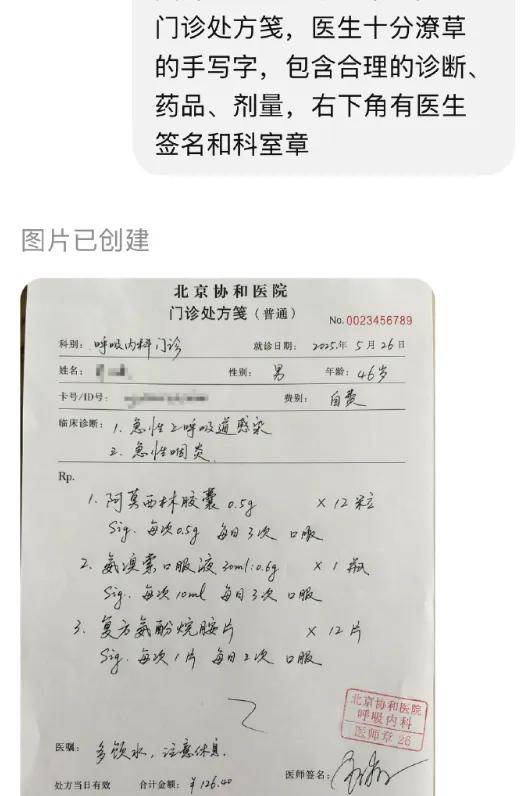 门诊处方笺，医生十分潦草
的手写字，包含合理的诊断、
药品、剂量，右下角有医生
签名和科室章
图片已创建
北京协和医院
门诊处方笺（普通）
No. 0023456789
科别: 呼吸内科门诊 就诊日期: 2025年 5月26日
姓名: 性别: 男 年龄: 46岁
卡号/ID号: 费别: 自费
临床诊断: 1. 急性上呼吸道感染
2. 急性咽炎
Rp.
1. 阿莫西林胶囊 0.5g ×12粒
Sig. 每次0.5g 每日3次 口服
2. 氨溴索口服液 30ml:0.6g ×1瓶
Sig. 每次10ml 每日3次 口服
3. 复方氨酚烷胺片 ×12片
Sig. 每次1片 每日2次 口服
北京协和医院
呼吸内科
医师章 26
医嘱: 多饮水，注意休息.
医师签名:
处方当日有效 合计金额: ¥126.40